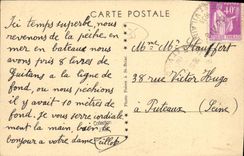 CARTE POSTALE
Ici temps superbe, nous
revenons de la pêche en
mer en bateaux nous
avons pris 8 livres de
Guitans a la ligne de
fond, ou nous pechions
il y avait 10 metres de
fond. Je vous serre cordiale
ment la main, bien le
bonjour a votre dame
40c
Mme Mr Hauffert
38 rue Victor Hugo
a Puteaux
(Seine)